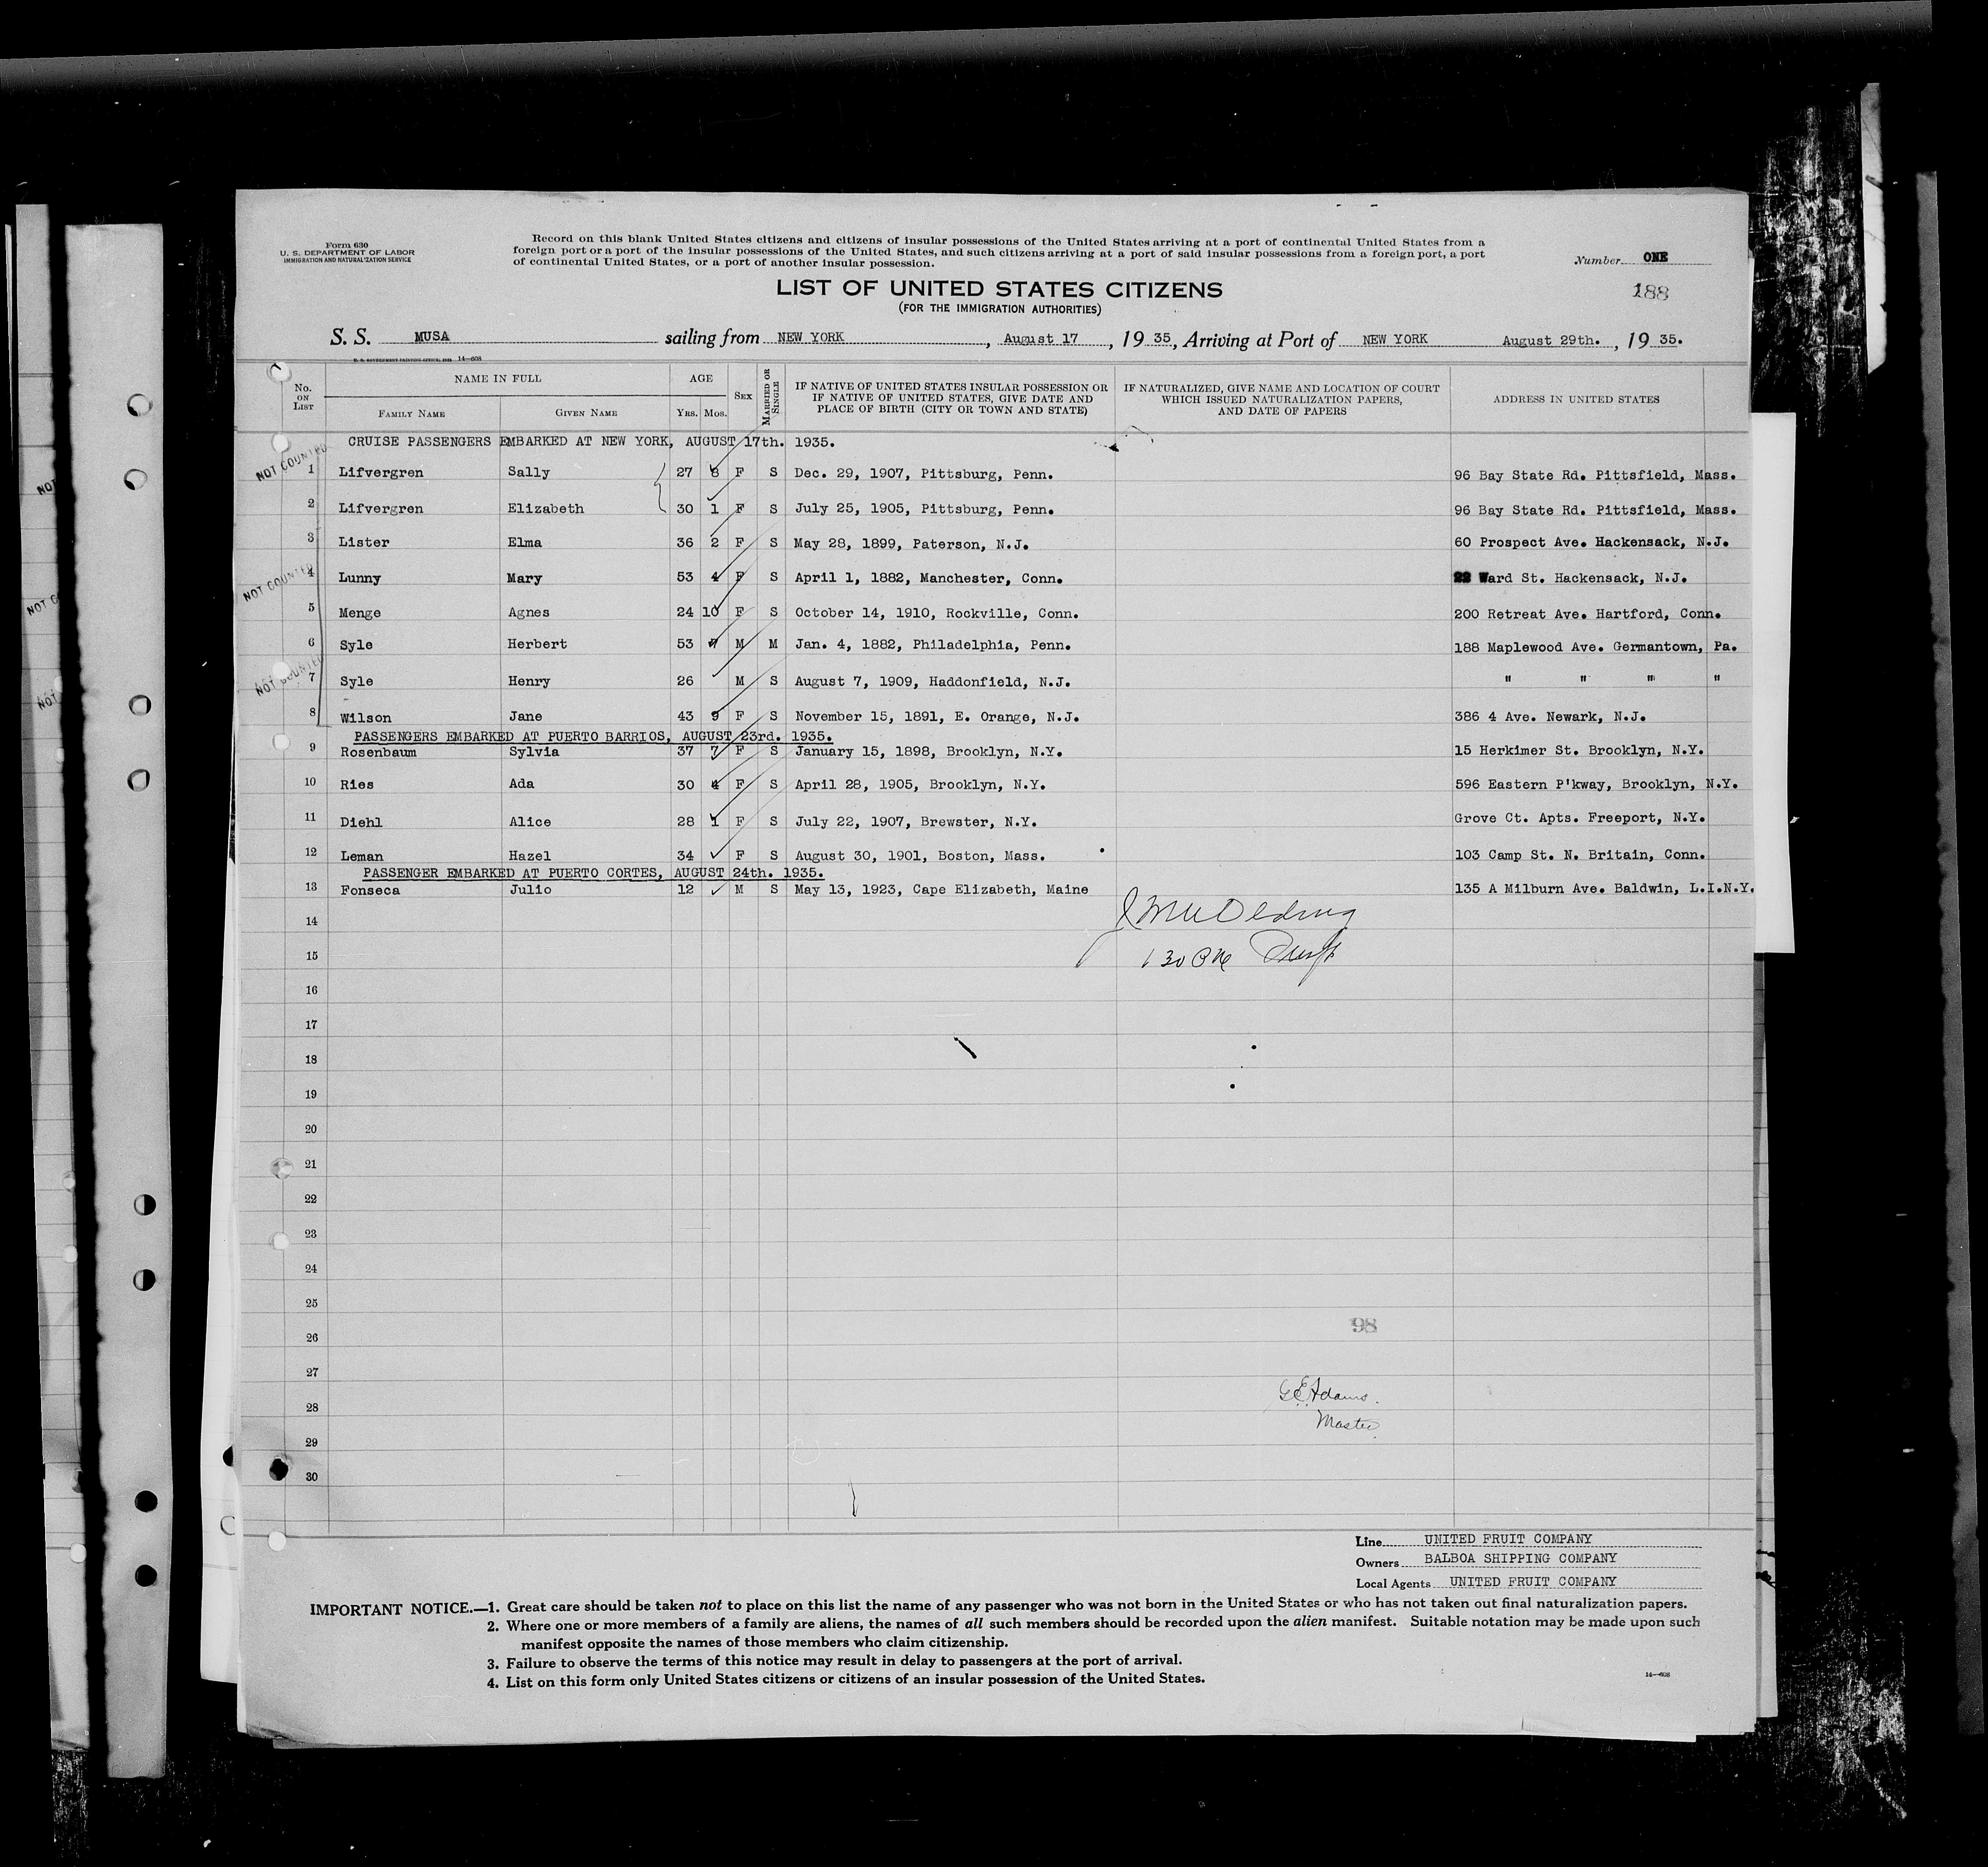 Form 630
U. S. DEPARTMENT OF LABOR
IMMIGRATION AND NATURALIZATION SERVICE
Record on this blank United States citizens and citizens of insular possessions of the United States arriving at a port of continental United States from a
foreign port or a port of the insular possessions of the United States, and such citizens arriving at a port of said insular possessions from a foreign port, a port
of continental United States, or a port of another insular possession.
Number ONE
188
LIST OF UNITED STATES CITIZENS
(FOR THE IMMIGRATION AUTHORITIES)
S. S. MUSA sailing from NEW YORK, August 17, 19 35, Arriving at Port of NEW YORK August 29th., 19 35.
U. S. GOVERNMENT PRINTING OFFICE 14—608
No. ON LIST NAME IN FULL FAMILY NAME GIVEN NAME AGE YRS. MOS. SEX MARRIED OR SINGLE IF NATIVE OF UNITED STATES INSULAR POSSESSION OR IF NATIVE OF UNITED STATES, GIVE DATE AND PLACE OF BIRTH (CITY OR TOWN AND STATE) IF NATURALIZED, GIVE NAME AND LOCATION OF COURT WHICH ISSUED NATURALIZATION PAPERS, AND DATE OF PAPERS ADDRESS IN UNITED STATES
CRUISE PASSENGERS EMBARKED AT NEW YORK, AUGUST 17th. 1935.
NOT COUNTED
1 Lifvergren Sally 27 8 F S Dec. 29, 1907, Pittsburg, Penn. 96 Bay State Rd. Pittsfield, Mass.
2 Lifvergren Elizabeth 30 1 F S July 25, 1905, Pittsburg, Penn. 96 Bay State Rd. Pittsfield, Mass.
3 Lister Elma 36 2 F S May 28, 1899, Paterson, N.J. 60 Prospect Ave. Hackensack, N.J.
NOT COUNTED
4 Lunny Mary 53 4 F S April 1, 1882, Manchester, Conn. 22 Ward St. Hackensack, N.J.
5 Menge Agnes 24 10 F S October 14, 1910, Rockville, Conn. 200 Retreat Ave. Hartford, Conn.
6 Syle Herbert 53 7 M M Jan. 4, 1882, Philadelphia, Penn. 188 Maplewood Ave. Germantown, Pa.
NOT COUNTED
7 Syle Henry 26 M S August 7, 1909, Haddonfield, N.J. " " " "
8 Wilson Jane 43 9 F S November 15, 1891, E. Orange, N.J. 386 4 Ave. Newark, N.J.
PASSENGERS EMBARKED AT PUERTO BARRIOS, AUGUST 23rd. 1935.
9 Rosenbaum Sylvia 37 7 F S January 15, 1898, Brooklyn, N.Y. 15 Herkimer St. Brooklyn, N.Y.
10 Ries Ada 30 4 F S April 28, 1905, Brooklyn, N.Y. 596 Eastern P'kway, Brooklyn, N.Y.
11 Diehl Alice 28 1 F S July 22, 1907, Brewster, N.Y. Grove Ct. Apts. Freeport, N.Y.
12 Leman Hazel 34 F S August 30, 1901, Boston, Mass. 103 Camp St. N. Britain, Conn.
PASSENGER EMBARKED AT PUERTO CORTES, AUGUST 24th. 1935.
13 Fonseca Julio 12 M S May 13, 1923, Cape Elizabeth, Maine 135 A Milburn Ave. Baldwin, L.I.N.Y.
14
15
16
17
18
19
20
21
22
23
24
25
98
26
27
G E Adams.
28
Master
29
30
Line UNITED FRUIT COMPANY
Owners BALBOA SHIPPING COMPANY
Local Agents UNITED FRUIT COMPANY
IMPORTANT NOTICE.—1. Great care should be taken not to place on this list the name of any passenger who was not born in the United States or who has not taken out final naturalization papers.
2. Where one or more members of a family are aliens, the names of all such members should be recorded upon the alien manifest. Suitable notation may be made upon such
manifest opposite the names of those members who claim citizenship.
3. Failure to observe the terms of this notice may result in delay to passengers at the port of arrival.
4. List on this form only United States citizens or citizens of an insular possession of the United States.
14—608